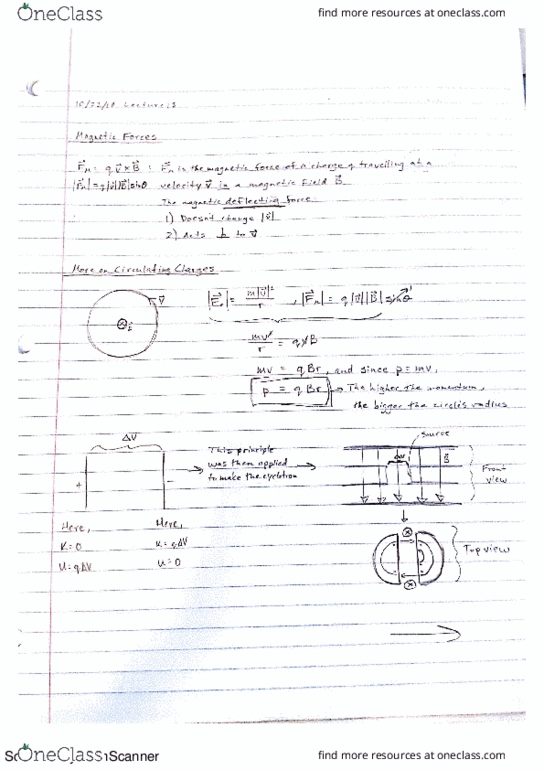 OneClass
find more resources at oneclass.com
10/22/18 Lecture 15
Magnetic Forces
F⃗ₘ = q v⃗ × B⃗ : F⃗ₘ is the magnetic force of a charge q travelling at a
|F⃗ₘ| = q|v⃗||B⃗|sinθ velocity v⃗ in a magnetic field B⃗.
The magnetic deflecting force
1) Doesn't change |v⃗|
2) Acts ⊥ to v⃗
More on Circulating Charges
v⃗
|F⃗| = m|v⃗|²/r , |F⃗ₘ| = q|v⃗||B⃗|sinθ
mv²/r = qvB
mv = qBr, and since p = mv,
p = qBr → The higher the momentum,
the bigger the circle's radius
ΔV
+ -
This principle
was then applied
to make the cyclotron
Source
ΔV
B⃗
Front
view
Here, Here,
K=0 K=qΔV
U=qΔV U=0
Top view
OneClass
Scanner
find more resources at oneclass.com